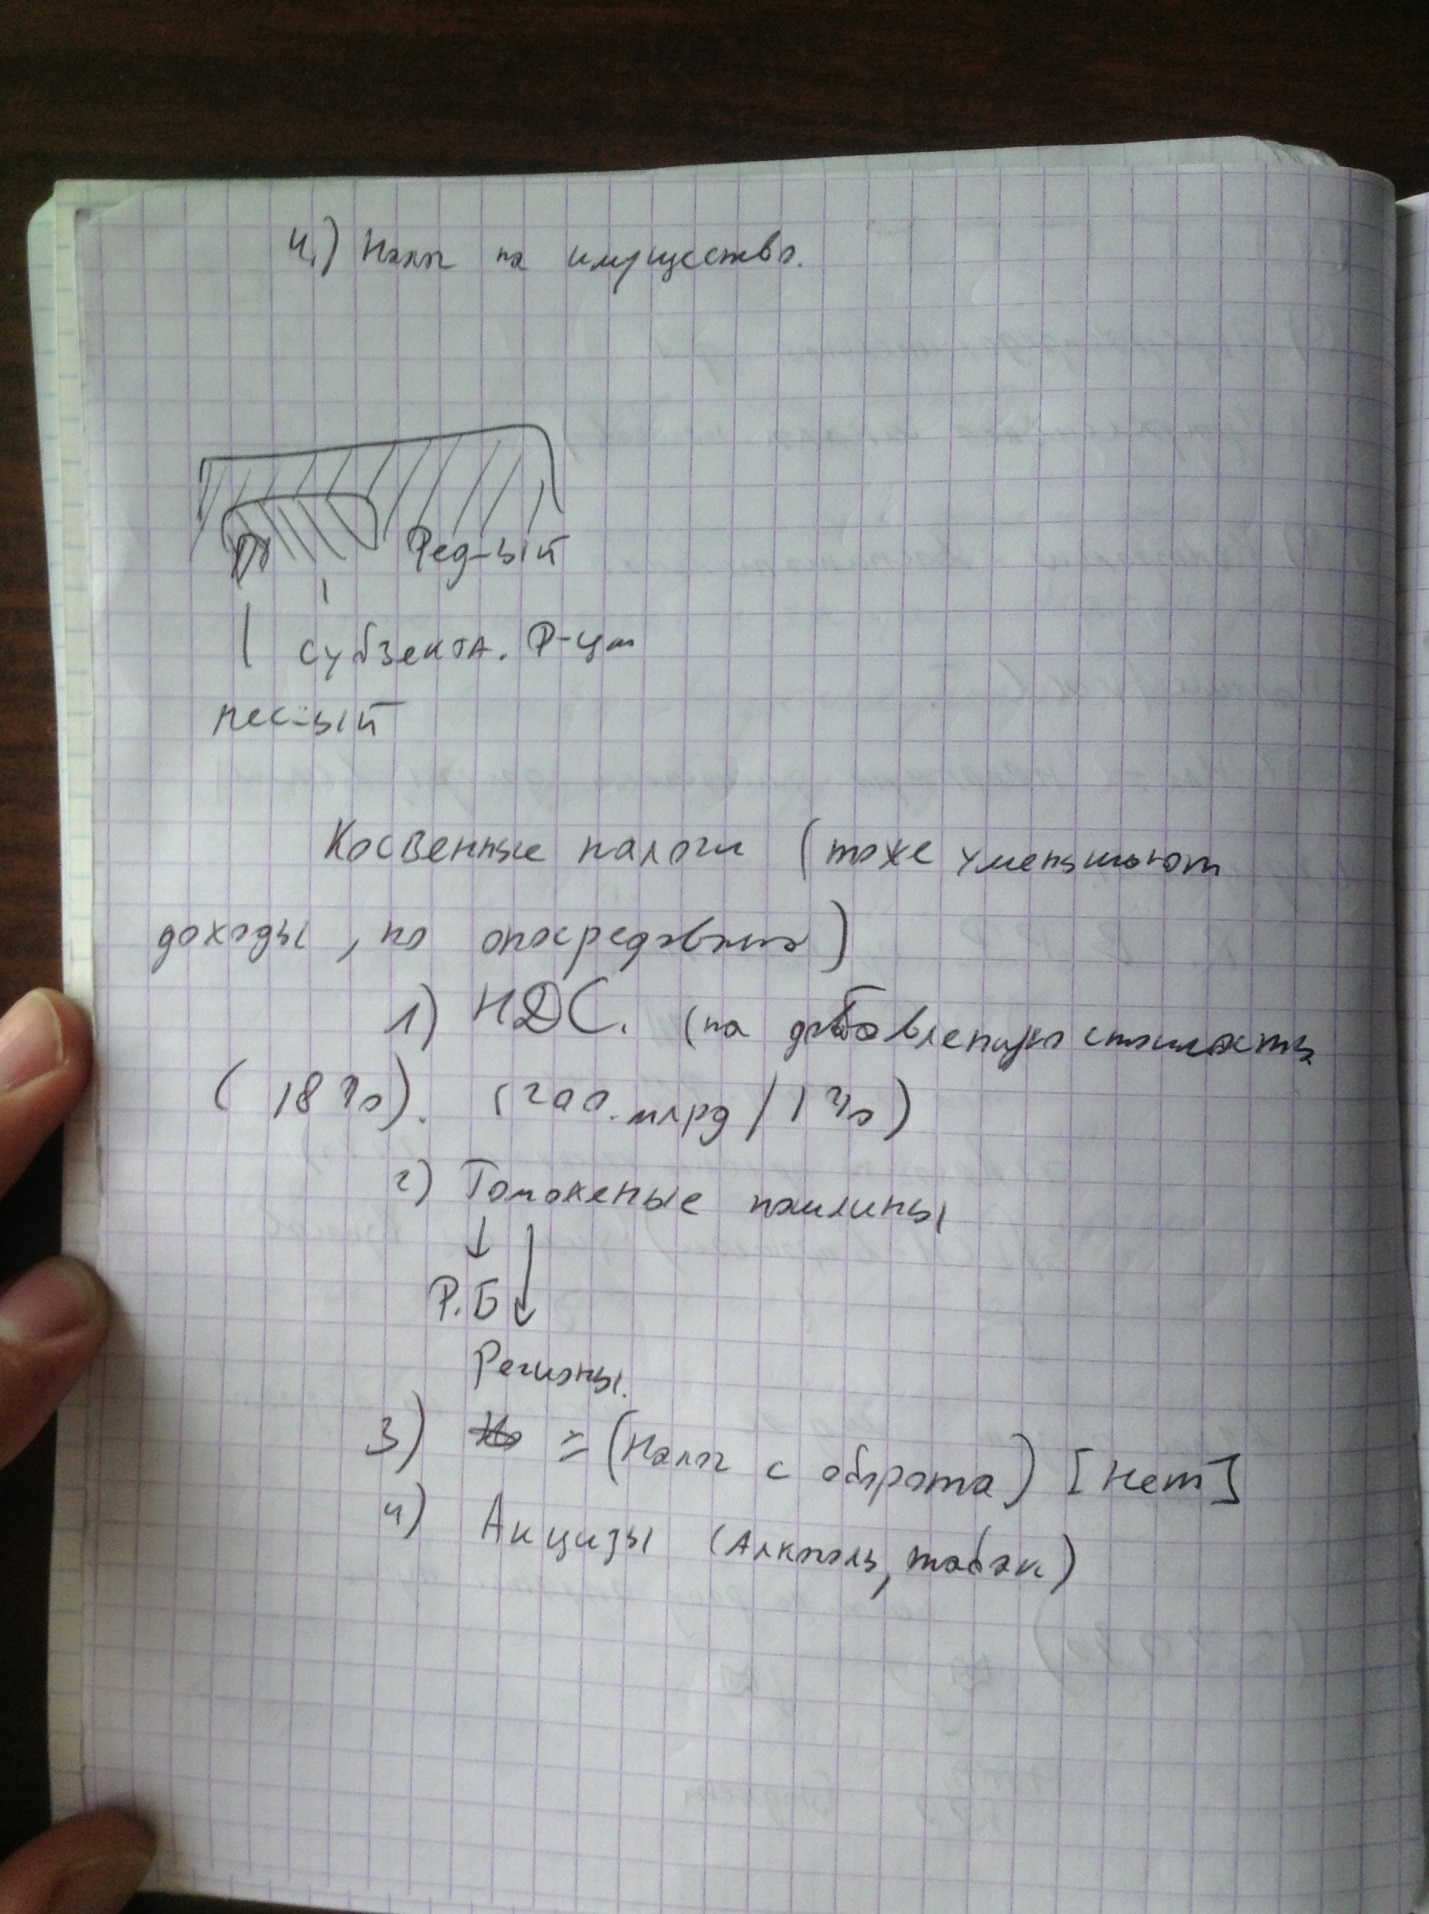 4.) Налог на имущество.
Фед-ый
субъекта. Ф-ции
мес-ый
Косвенные налоги (тоже уменьшают
доходы, но опосредовано)
1) НДС. (на добавленую стоимость
(18%). (200. млрд/1%)
2) Таможеные пошлины
Р.Б
Регионы.
3) = (Налог с оборота) [Нет]
4) Акцизы (Алкголь, табак)